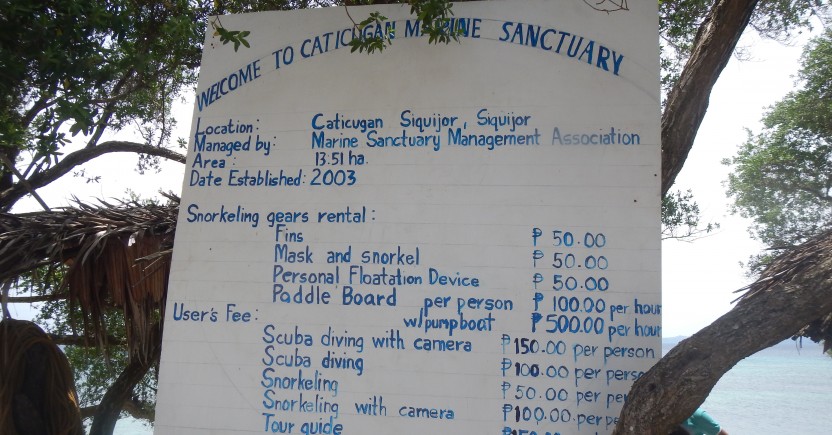 WELCOME TO CATICUGAN MARINE SANCTUARY
Location: Caticugan Siquijor, Siquijor
Managed by: Marine Sanctuary Management Association
Area: 13.51 ha.
Date Established: 2003
Snorkeling gears rental:
Fins ₱ 50.00
Mask and snorkel ₱ 50.00
Personal Floatation Device ₱ 50.00
Paddle Board per person ₱ 100.00 per hour
w/pumpboat ₱ 500.00 per hour
User's Fee:
Scuba diving with camera ₱150.00 per person
Scuba diving ₱100.00 per perso
Snorkeling ₱50.00 per per
Snorkeling with camera ₱100.00 per pe
Tour guide